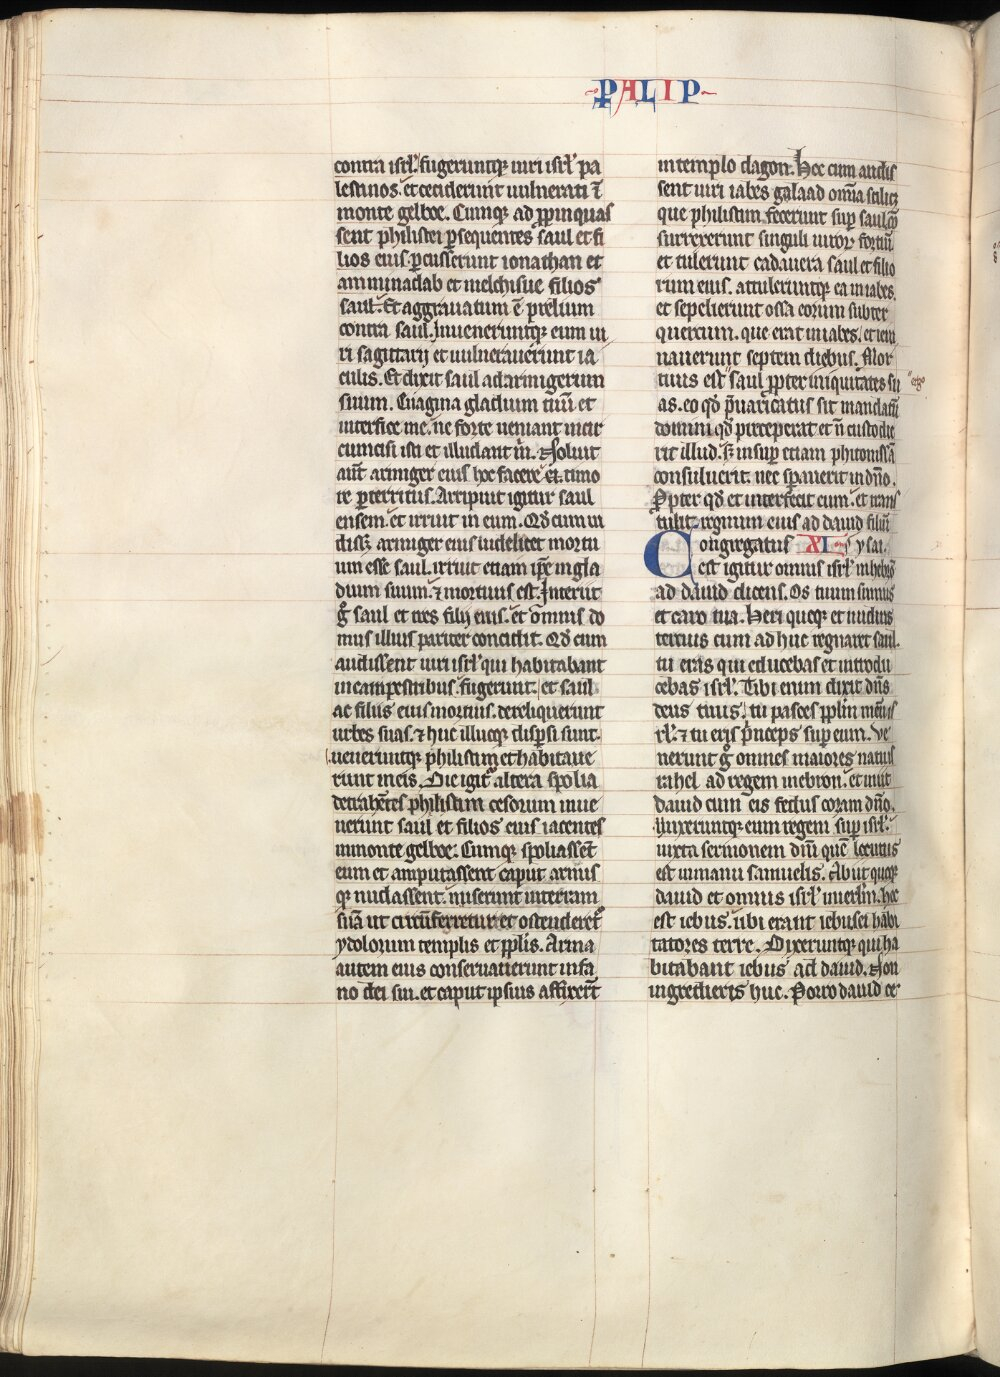 PALIP
contra isrl̃. fugeruntq; uiri isrl̃ pa
lestinos. et ceciderunt uulnerati ĩ
monte gelboe. Cumq; ad ꝓpinquas
sent philistei ꝑsequentes saul et fi
lios eius. ꝑcusserunt ionathan et
amminadab et melchisue filios
saul. Et aggrauatum ẽ prelium
contra saul. Inueneruntq; eum ui
ri sagittarij et uulnerauerunt ia
culis. Et dixit saul ad armigerum
suum. Euagina gladium tuũ et
interfice me. ne forte ueniant incir
cumcisi isti et illudant m̃. Noluit
aut̃ armiger eius hoc facere timo
re ꝑterritus. Arripuit igitur saul
ensem. et irruit in eum. Qd̃ cum ui
diss; armiger eius uidelicet mortu
um esse saul. irruit etiam ip̃e in gla
dium suum. ⁊ mortuus est. Interijt
g̊ saul et tres filij eius. et omnis do
mus illius pariter concidit. Qd̃ cum
audissent uiri isrl̃ qui habitabant
in campestribus. fugerunt. et saul
ac filiis eius mortuis. dereliquerunt
urbes suas. ⁊ huc illucq; disꝑsi sunt.
ueneruntq; philistiim et habitaue
runt in eis. Die igit᷑ altera spolia
detrahẽtes philistiim cesorum inue
nerunt saul et filios eius iacentes
in monte gelboe. Cumq; spoliassẽt
eum et amputassent caput. armis
q; nudassent. miserunt in terram
suã ut circũferretur et ostenderet᷑
ydolorum templis et ppl̃is. Arma
autem eius consecrauerunt in fa
no dei sui. et caput ipsius affixer̃t
in templo dagon. Hoc cum audis
sent uiri iabes galaad omĩa scilic;
que philistiim fecerunt suꝑ saul.
surrexerunt singuli uiroꝝ fortiũ
et tulerunt cadauera saul et filio
rum eius. attuleruntq; ea in iabes.
et sepelierunt ossa eorum subter
quercum. que erat in iabes. et ieiu
nauerunt septem diebus. Mor
tuus est g̊ saul ꝓpter iniquitates su
as. eo qd̃ p̃uaricatus sit mandatũ
domini qd̃ preceperat et ñ custodie
rit illud. s; insuꝑ etiam phitonissã
consuluerit. nec sꝑauerit in dñо.
Ꝓpter qd̃ et interfecit eum. et trans
tulit regnum eius ad dauid filiũ
Congregatus XI ysai.
est igitur omnis isrl̃ in hebrõ
ad dauid dicens. Os tuum sumus
et caro tua. Heri quoq; et nudius
tercius cum adhuc regnaret saul.
tu eras qui educebas et introdu
cebas isrl̃. Tibi enim dixit dñs
deus tuus. tu pasces ppl̃m meũ is
rl̃. ⁊ tu eris p̃nceps suꝑ eum. Ve
nerunt g̊ omnes maiores natu is
rahel ad regem in ebron. et iniit
dauid cum eis fedus coram dño.
Unxeruntq; eum regem suꝑ isrl̃.
iuxta sermonem dñi quẽ locutus
est in manu samuelis. Abiit quoq;
dauid et omnis isrl̃ in ierl̃m. hec
est iebus. ubi erant iebusei habi
tatores terre. Dixeruntq; qui ha
bitabant iebus ad dauid. Non
ingredieris huc. Porro dauid ce